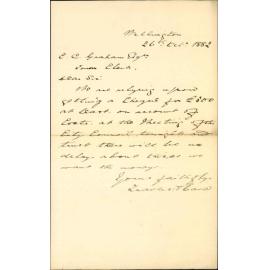 Wellington
26th Oct. 1882
C. C. Graham Esqre
Town Clerk
Dear Sir
We are relying upon
getting a Cheque for £500
at least on account of
Costs at the Meeting of the
City Council tonight and
trust there will be no
delay about this as we
want the money.
Yours faithfully